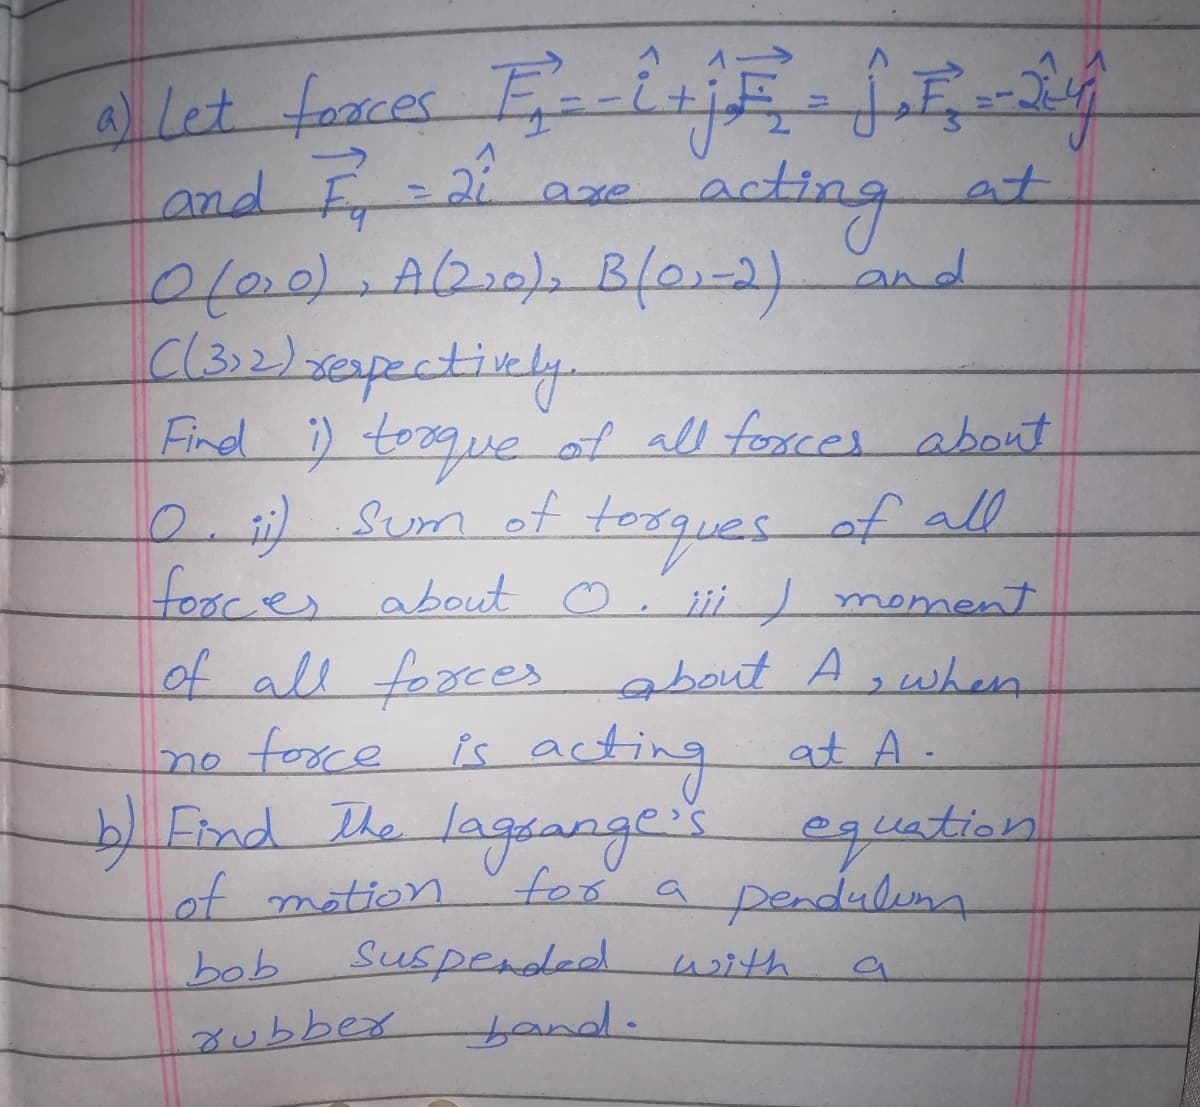 a) Let forces F⃗₁ = -î + ĵ, F⃗₂ = ĵ, F⃗₃ = -2î-4ĵ
and F⃗₄ = 2î are acting at
O(0,0), A(2,0), B(0,-2) and
C(3,2) respectively.
Find i) torque of all forces about
O. ii) Sum of torques of all
forces about O. iii) moment
of all forces about A, when
no force is acting at A.
b) Find The lagrange's equation
of motion for a pendulum
bob suspended with a
rubber band.